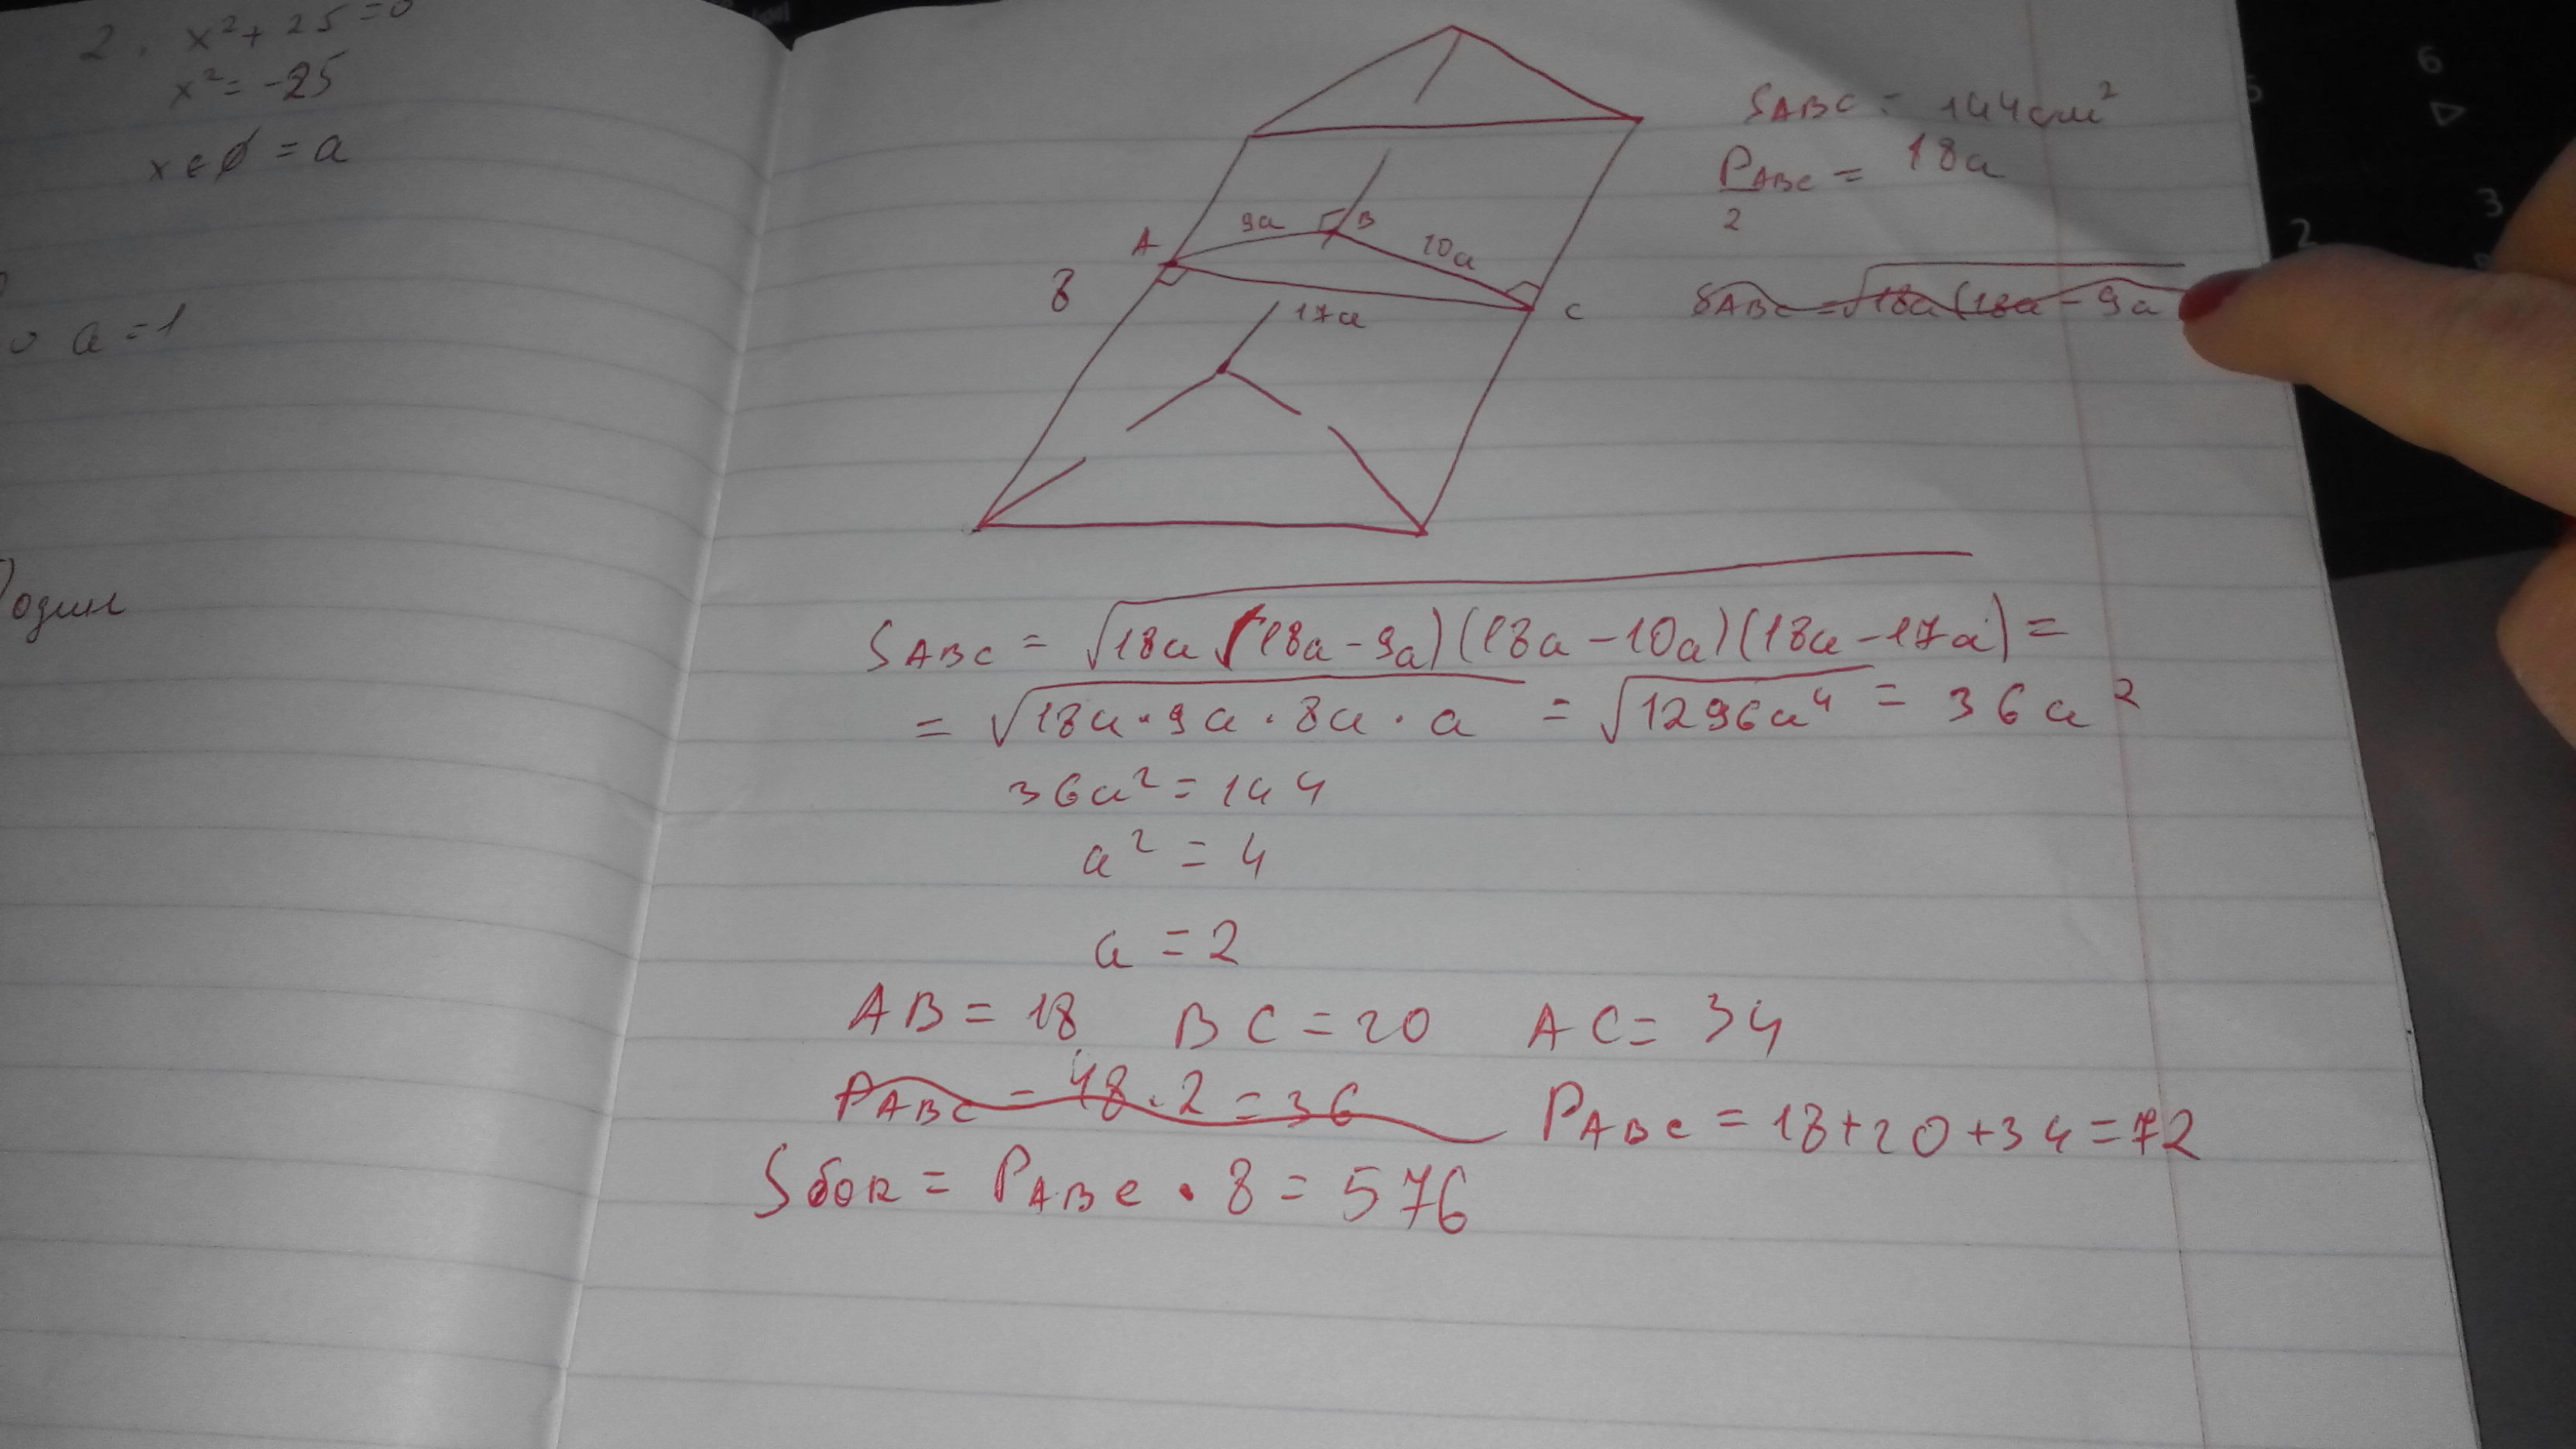 2. x² + 25 = 0
x² = -25
x ∈ ∅ = a
a = 1
один
S ABC = 144 см²
P ABC / 2 = 18a
A
9a
B
10a
8
17a
C
S ABC = √18a (18a - 9a
S ABC = √18a (18a - 9a) (18a - 10a) (18a - 17a) =
= √18a · 9a · 8a · a = √1296a⁴ = 36a²
36a² = 144
a² = 4
a = 2
AB = 18 BC = 20 AC = 34
P ABC = 18 · 2 = 36 P ABC = 18 + 20 + 34 = 72
S бок = P ABC · 8 = 576
5
6
2
3